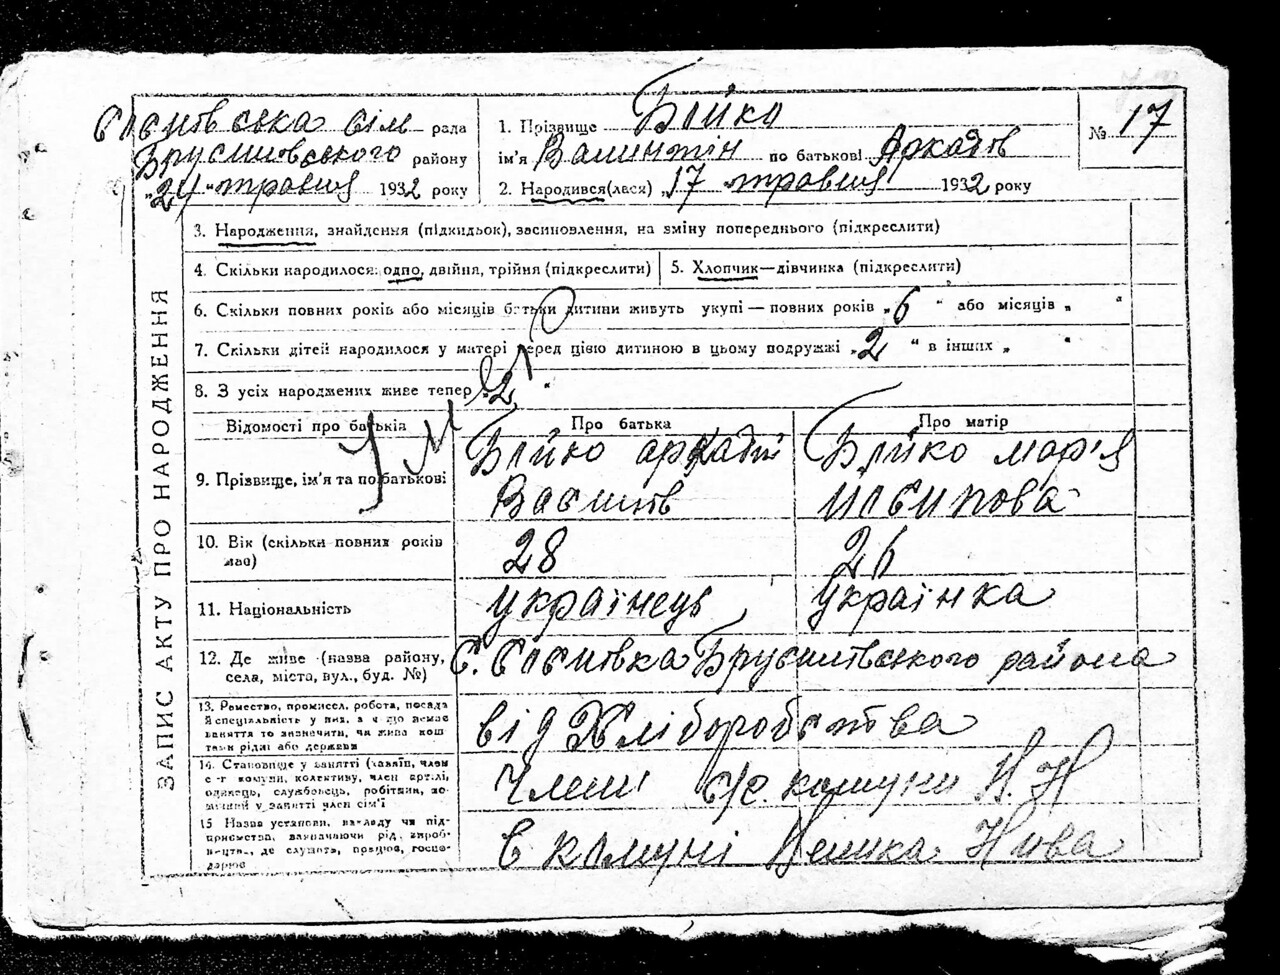 сільрада
Брусилівського району
"24" травня 1932 року
1. Прізвище Бойко
ім'я Валинтін по батькові Аркадів
2. Народився(лася) "17 травня 1932 року
№ 17
ЗАПИС АКТУ ПРО НАРОДЖЕННЯ
3. Народження, знайдення (підкидьок), засиновлення, на зміну попереднього (підкреслити)
4. Скільки народилося: одно, двійня, трійня (підкреслити)
5. Хлопчик—дівчинка (підкреслити)
6. Скільки повних років або місяців батьки дитини живуть укупі — повних років „6" або місяців „ "
7. Скільки дітей народилося у матері перед цією дитиною в цьому подружжі „2" в інших „ "
8. З усіх народжених живе тепер „2"
Відомості про батьків
Про батька
Про матір
9. Прізвище, ім'я та по батькові
Бойко Аркадій
Василів
Бойко Мар'я
10. Вік (скільки повних років має)
28
26
11. Національність
українець
українка
12. Де живе (назва району,
села, міста, вул., буд. №)
с. Брусилівського района
13. Ремество, промисел, робота, посада
й спеціальність у них, а що немає
заняття то зазначити, чи живе кош
від Хліборобства
14. Становище у занятті (хазяїн, член
с-г комуни, колективу, член артілі,
одинець, службовець, робітник, до-
член сім'ї
Члени с/г. комуни Н. Н
15 Назва установи, закладу чи під-
приємства, зазначаючи рід. вироб-
ництв., де служить, працює, госпо-
дарює
в комуні Велика Нива